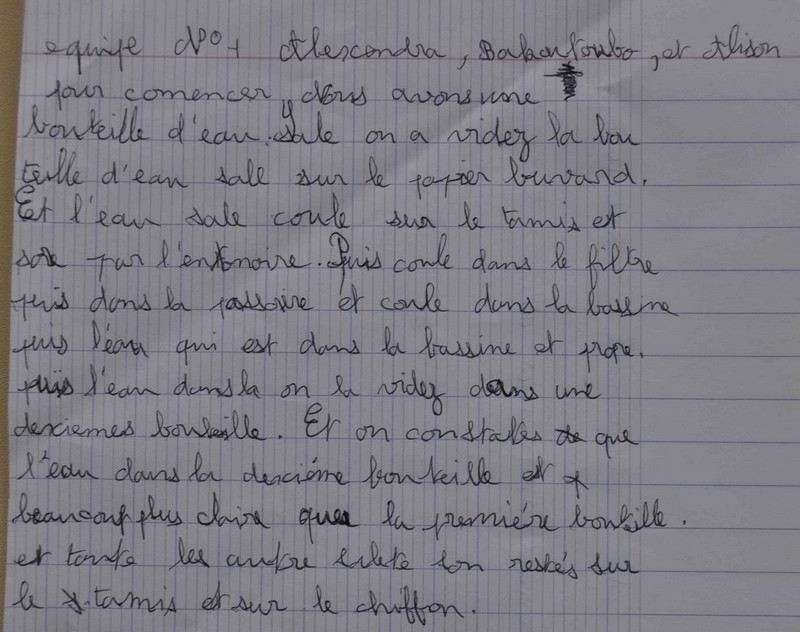 equipe N°1 Alescendra, Bakoutoubo, et Alison
pour comencer, nous avons une
bouteille d'eau. sale on a videz la bou
teille d'eau sale sur le papier buvard.
Et l'eau sale coule sur le tamis et
sore par l'entonoire. Puis coule dans le filtre
puis dans la passoire et coule dans la bassine
puis l'eau qui est dans la bassine et prope.
puis l'eau dans la on la videz dans une
dexciemes bouteille. Et on constates que
l'eau dans la dexciéme bouteille est
beaucoup plus claire que la premiére bouteille.
et toute les autre salete son restés sur
le tamis et sur le chiffon.